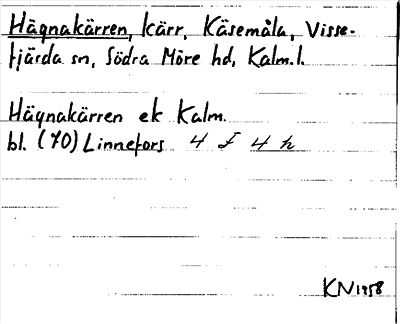 Hägnakärren, kärr, Käsemåla, Visse-
fjärda sn, Södra Möre hd, Kalm. l.
Hägnakärren ek Kalm.
bl. (70) Linnefors 4 f 4 h
KN 1958